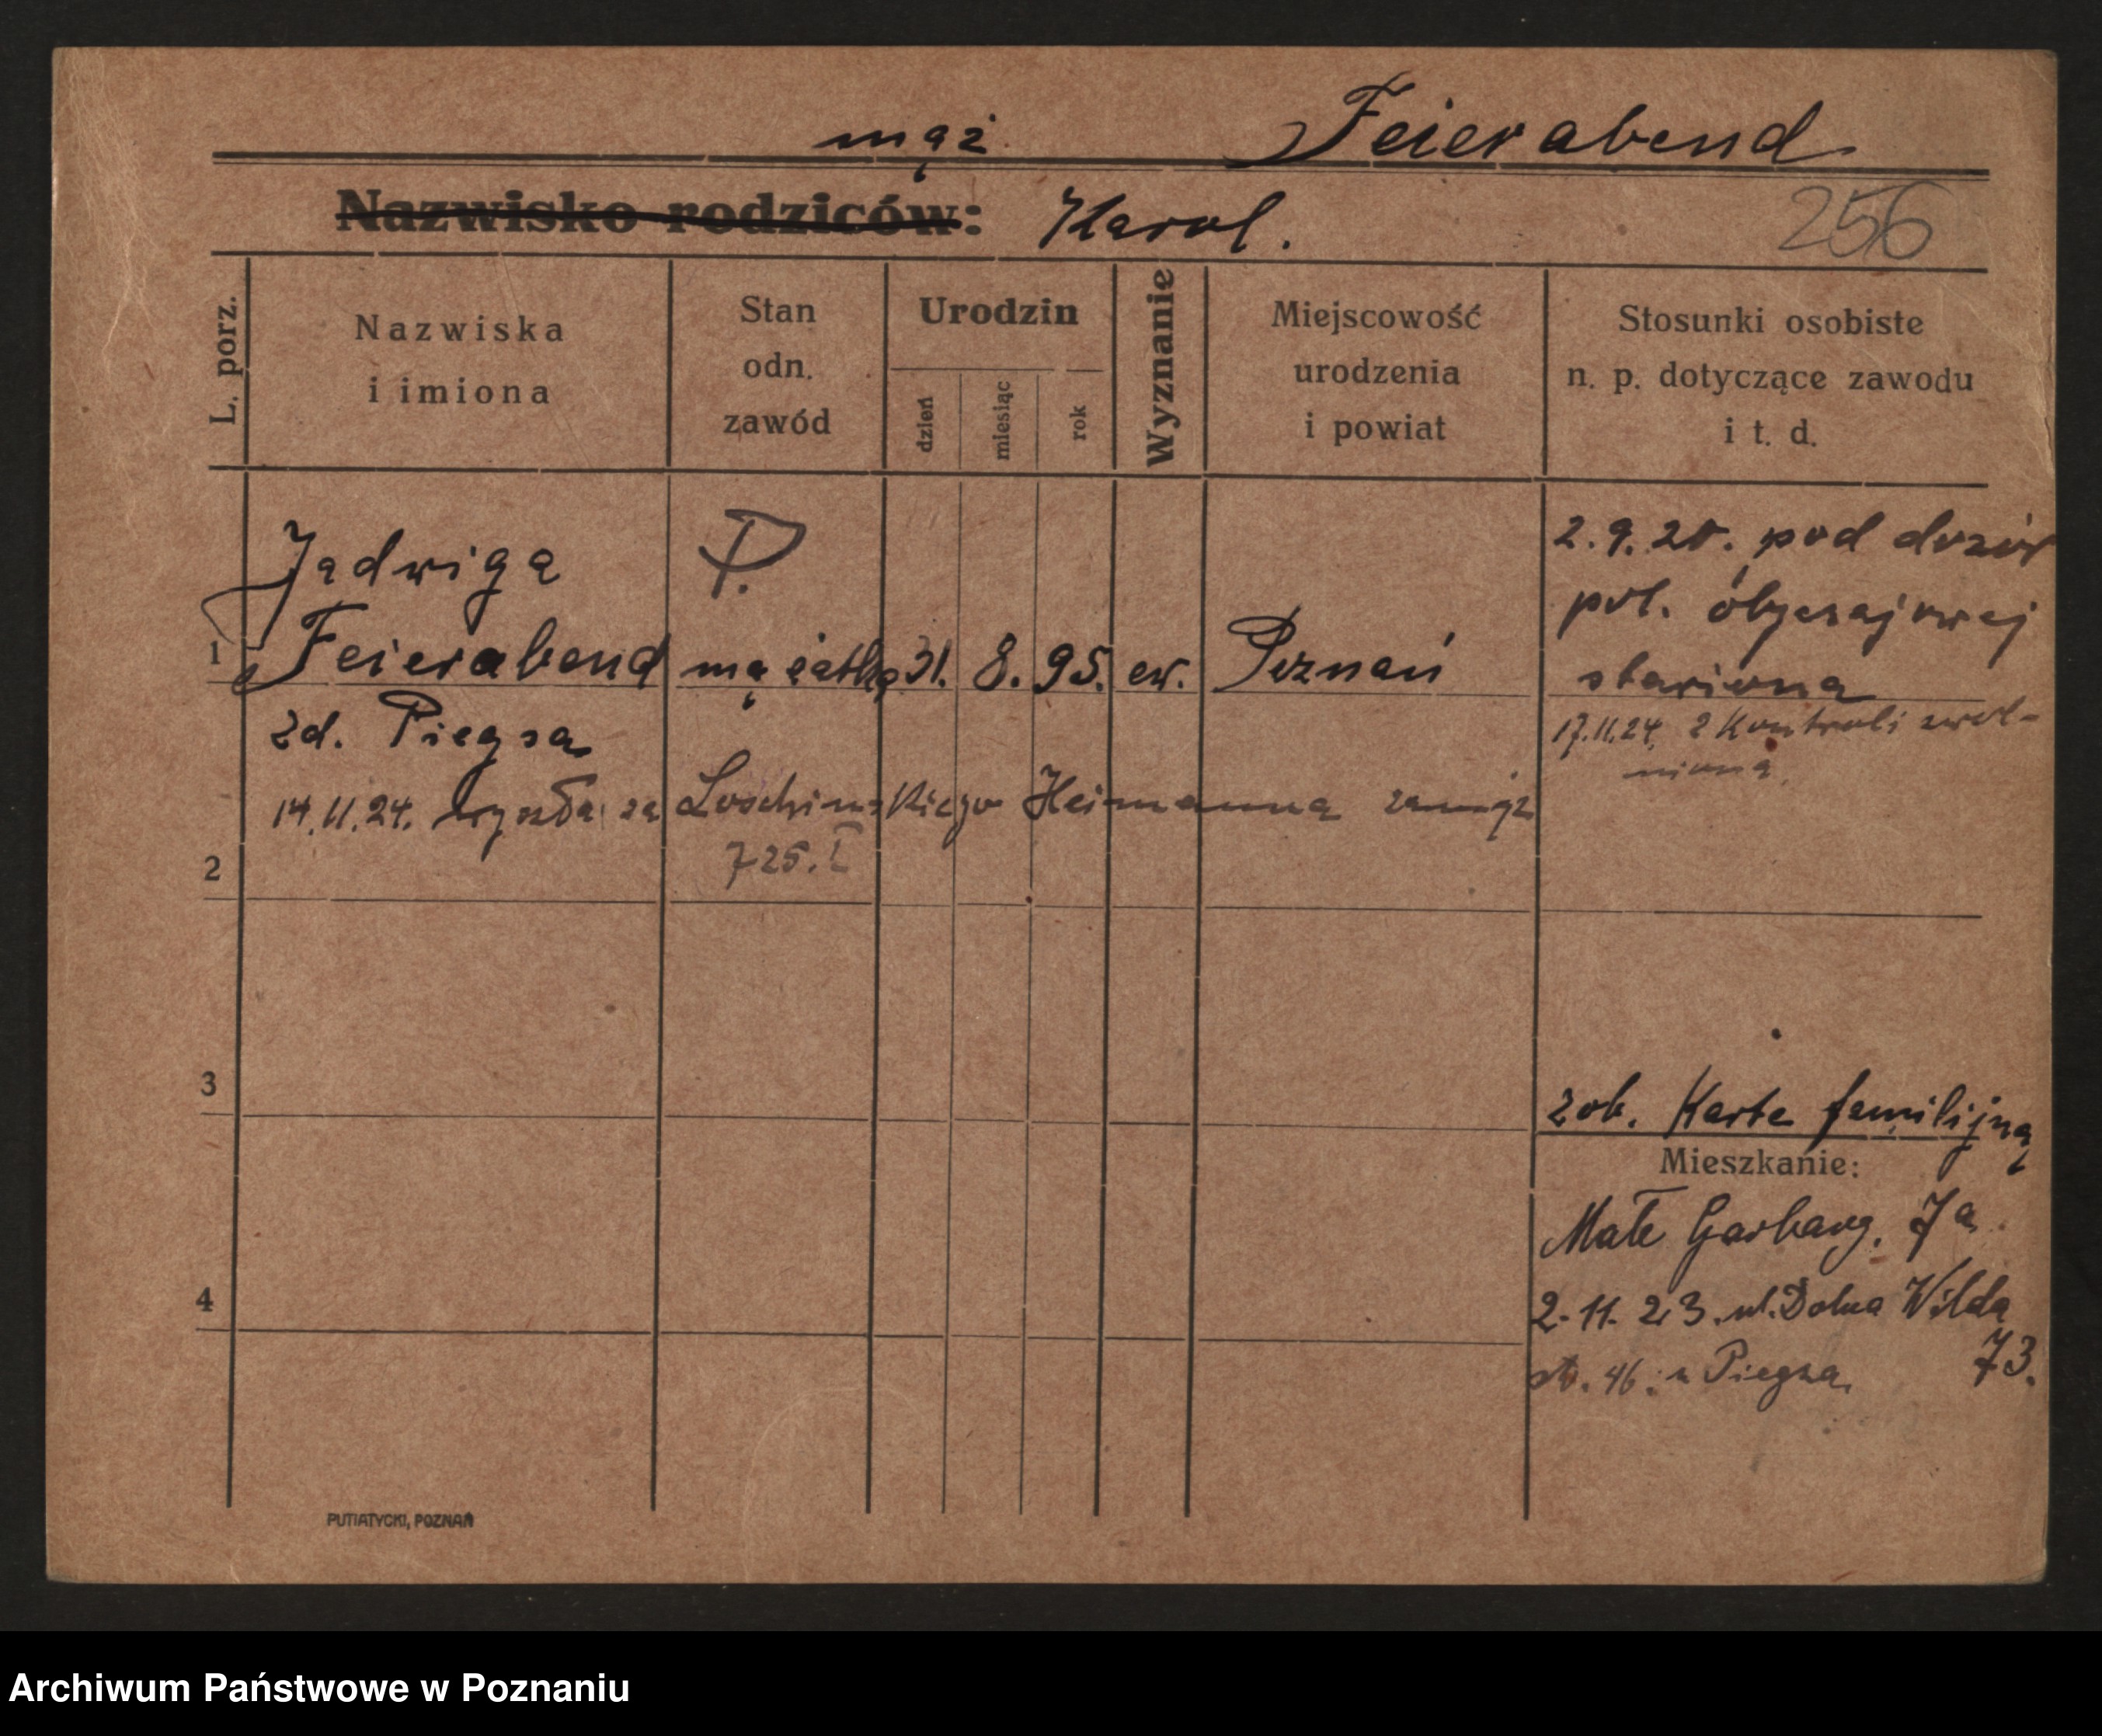 mąż Feierabend
Nazwisko rodziców: Karol.
256
L. porz.
Nazwiska
i imiona
Stan
odn.
zawód
Urodzin
dzień
miesiąc
rok
Wyznanie
Miejscowość
urodzenia
i powiat
Stosunki osobiste
n. p. dotyczące zawodu
i t. d.
Jadwiga
P.
1 Feierabend mężatka 31. 8. 95. ew. Poznań
zd. Piegsa
14.11.24. wyszła za Loschinskiego Heimanna zamąż
725. I
2.9.20. pod dozór
pol. obyczajowej
stawiona
17.11.24. z Kontroli zwol-
niona.
2
3
4
zob. Karte familijną
Mieszkanie:
Małe Garbary. 7a.
2.11.23. ul. Dolna Wilda
73.
st. 46. u Piegsa
PUTIATYCKI, POZNAŃ
Archiwum Państwowe w Poznaniu